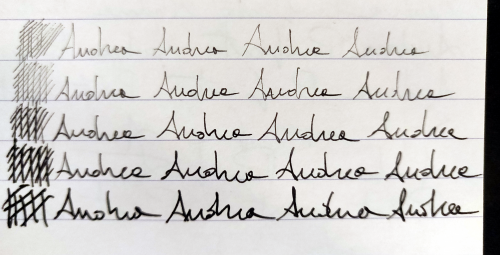 Andrea Andrea Andrea Andrea
Andrea Andrea Andrea Andrea
Andrea Andrea Andrea Andrea
Andrea Andrea Andrea Andrea
Andrea Andrea Andrea Andrea